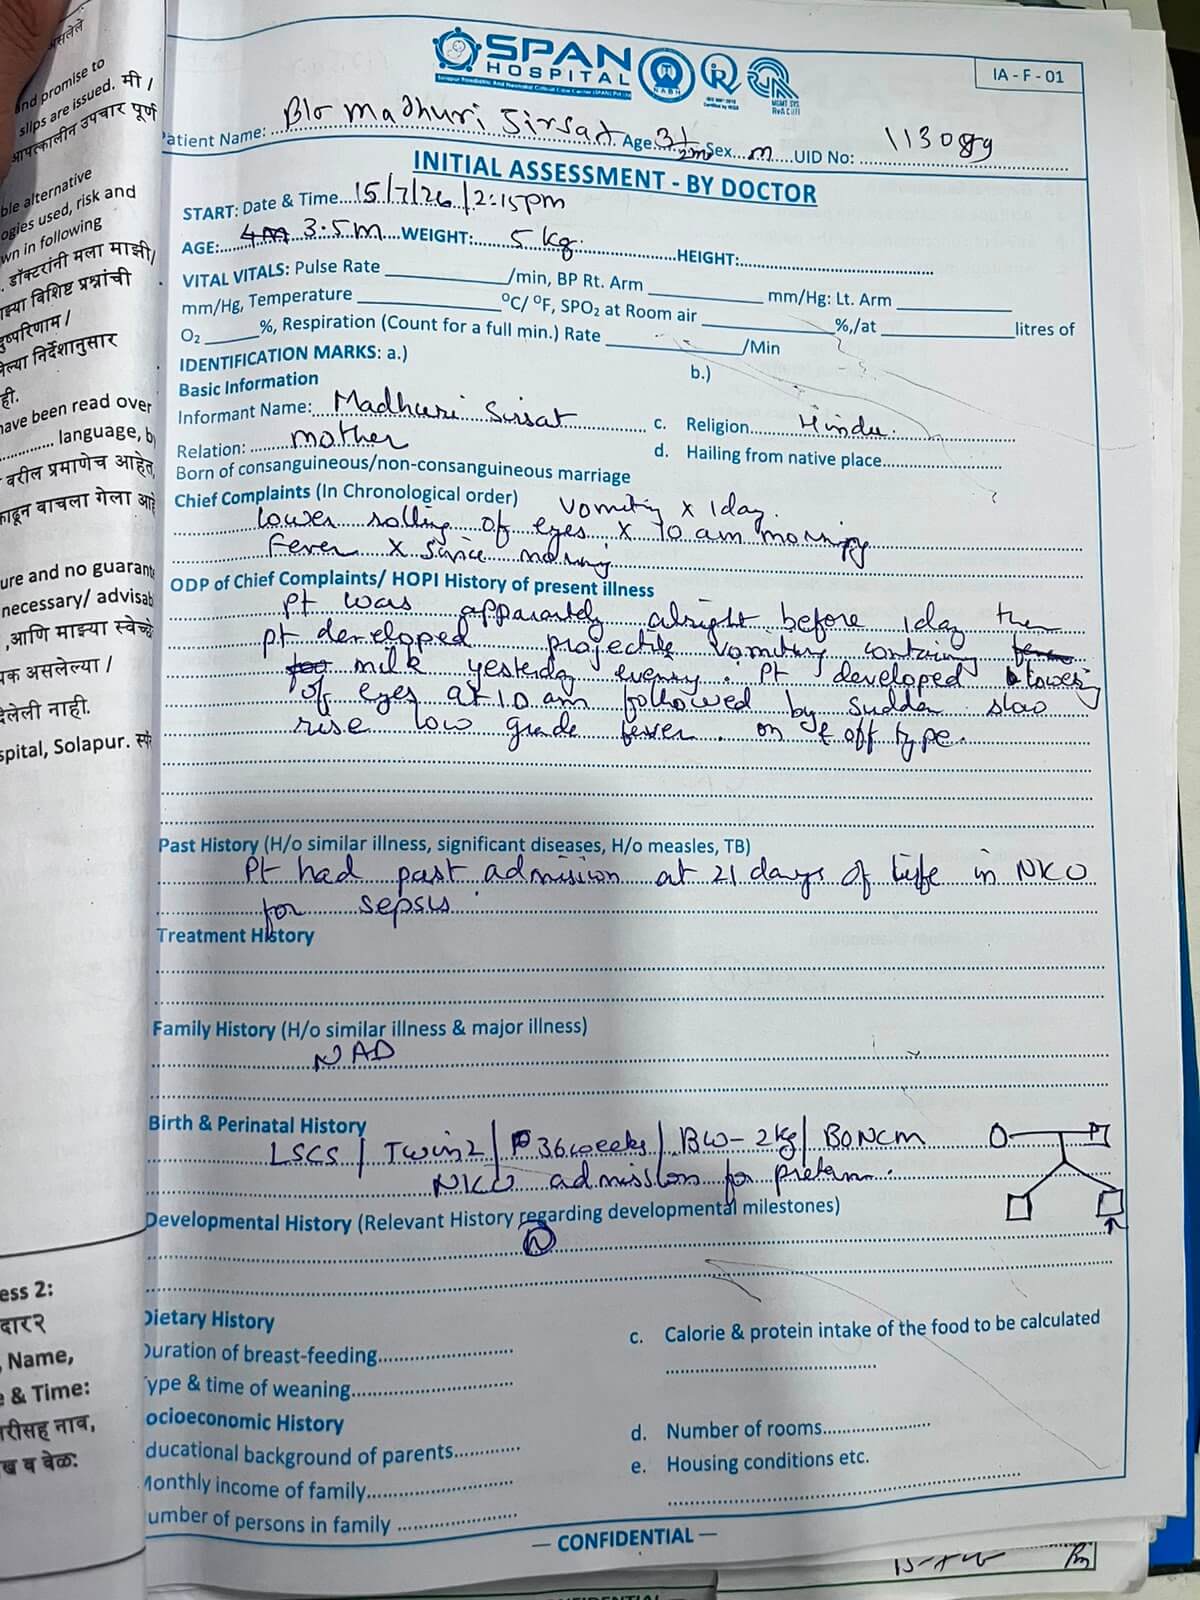 SPAN
HOSPITAL
Solapur Paediatric And Neonatal Critical Care Center (SPAN) Pvt Ltd
NABH
IA - F - 01
Patient Name: B/o Madhuri Sirsat Age 3 1/2 m Sex m UID No: 113089
INITIAL ASSESSMENT - BY DOCTOR
START: Date & Time 15/7/26 / 2:15pm
AGE: 4m 3.5m WEIGHT: 5 kg. HEIGHT:
VITAL VITALS: Pulse Rate /min, BP Rt. Arm mm/Hg: Lt. Arm
mm/Hg, Temperature °C/ °F, SPO₂ at Room air %,/at litres of
O₂ %, Respiration (Count for a full min.) Rate /Min
IDENTIFICATION MARKS: a.) b.)
Basic Information
Informant Name: Madhuri Sirsat c. Religion Hindu
Relation: mother d. Hailing from native place
Born of consanguineous/non-consanguineous marriage
Chief Complaints (In Chronological order) Vomiting x 1 day.
rolling of eyes x 10 am morning
Fever x since morning
ODP of Chief Complaints/ HOPI History of present illness
Pt was apparantely alright before 1 day then
pt developed projectile vomiting containing
milk yesterday evening. Pt developed
of eyes at 10 am followed by sudden slow
rise low grade fever. on & off type.
Past History (H/o similar illness, significant diseases, H/o measles, TB)
Pt had past admission at 21 days of life in NICU
for sepsis
Treatment History
Family History (H/o similar illness & major illness)
NAD
Birth & Perinatal History
LSCS / Twin 2 / 36 weeks / BW - 2 kg / BONCM
NICU admission for preterm.
Developmental History (Relevant History regarding developmental milestones)
N
Dietary History
Duration of breast-feeding
c. Calorie & protein intake of the food to be calculated
ype & time of weaning
ocioeconomic History
ducational background of parents
d. Number of rooms
Monthly income of family
e. Housing conditions etc.
umber of persons in family
— CONFIDENTIAL —
nd promise to
slips are issued. मी /
आपत्कालीन उपचार पूर्ण
ble alternative
ogies used, risk and
wn in following
डॉक्टरांनी मला माझी/
झ्या विशिष्ट प्रश्नांची
दुष्परिणाम /
ल्या निर्देशानुसार
ही.
have been read over
language, b
वरील प्रमाणेच आहेत,
काढून वाचला गेला आहे
ure and no guarant
necessary/ advisab
,आणि माझ्या स्वेच्छे
यक असलेल्या /
लेली नाही.
spital, Solapur.
ess 2:
दार २
, Name,
e & Time:
रीसह नाव,
ख व वेळ: